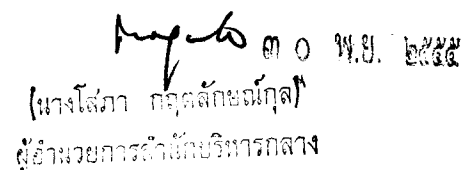 ๓ ๐ พ.ย. ๒๕๕๕
(นางโสภา กฤตลักษณ์กุล)
ผู้อำนวยการสำนักบริหารกลาง